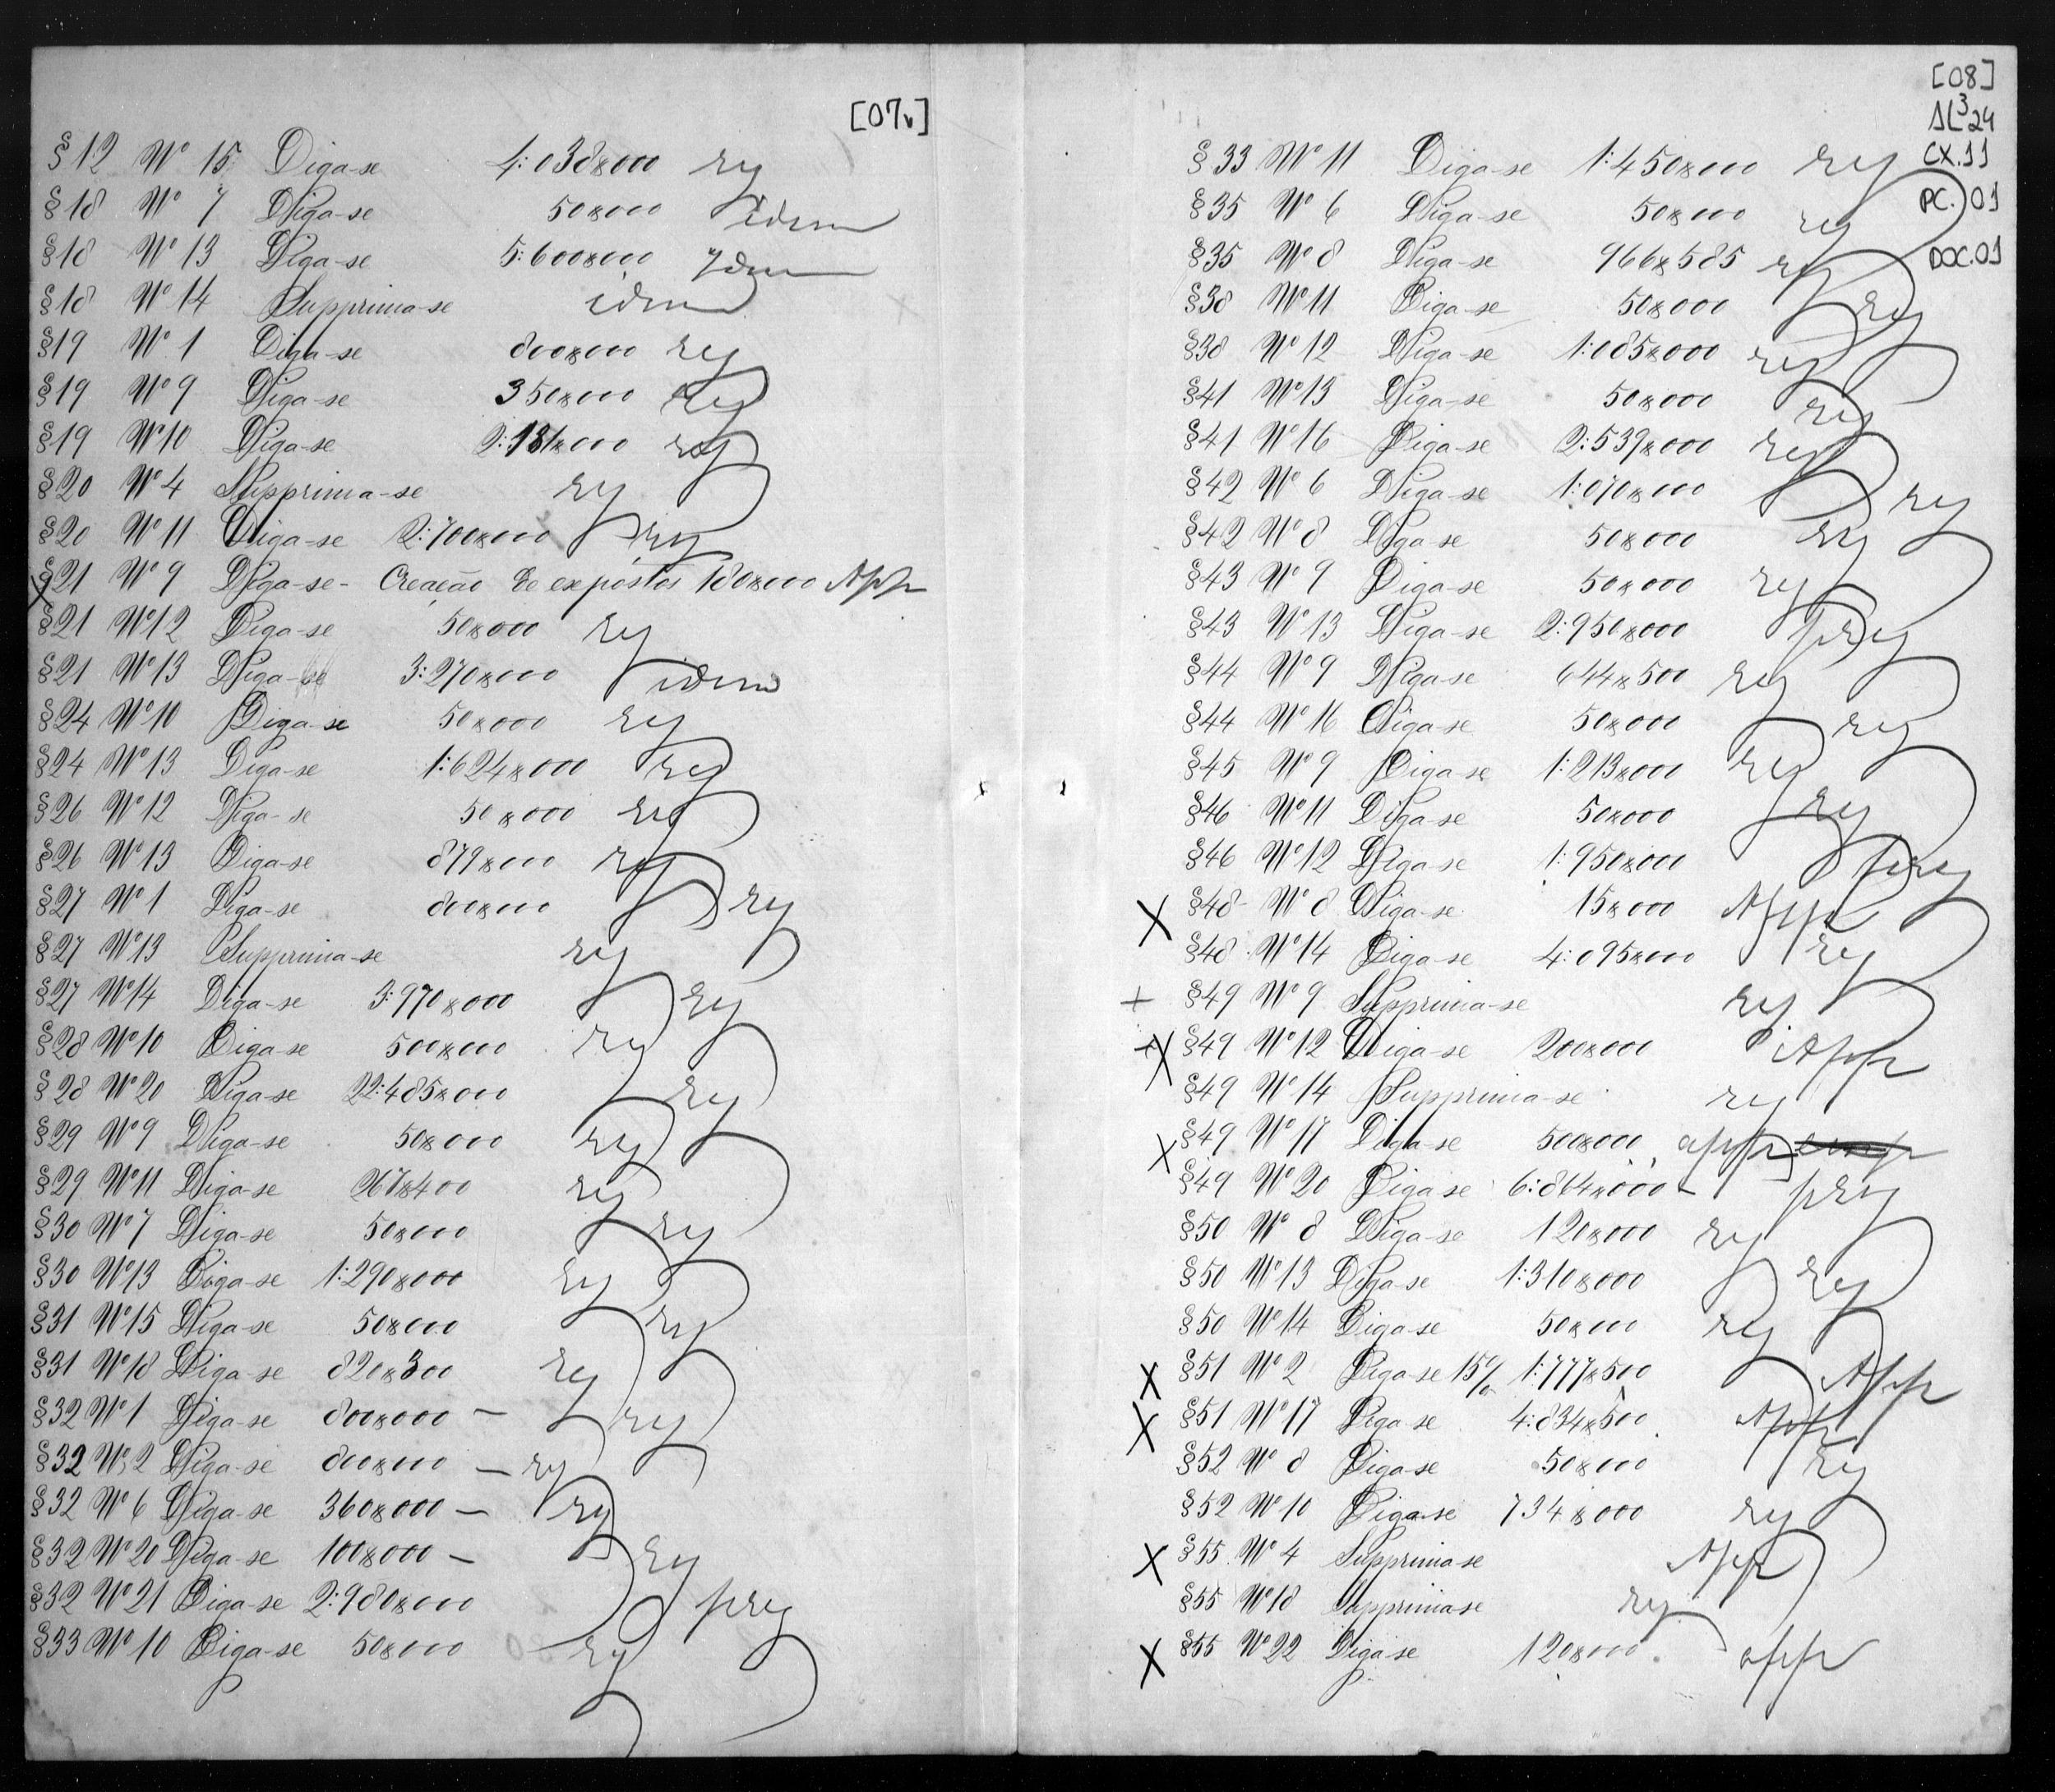 [07v]
§12 Nº 15 Diga-se 4:038$000 rej
§18 Nº 7 Diga-se 50$000 idem
§18 Nº 13 Diga-se 5:600$000 Idem
§18 Nº 14 Supprima-se idem
§19 Nº 1 Diga-se 800$000 rej
§19 Nº 9 Diga-se 350$000 rej
§19 Nº 10 Diga-se 2:181$000 rej
§20 Nº 4 Supprima-se rej
§20 Nº 11 Diga-se 2:700$000 rej
X §21 Nº 9 Diga-se - Creação de expostos 180$000 App
§21 Nº 12 Diga-se 50$000 rej
§21 Nº 13 Diga-se 3:270$000 idem
§24 Nº 10 Diga-se 50$000 rej
§24 Nº 13 Diga-se 1:624$000 rej
§26 Nº 12 Diga-se 50$000 rej
§26 Nº 13 Diga-se 879$000 rej
§27 Nº 1 Diga-se 800$000 rej
§27 Nº 13 Supprima-se rej
§27 Nº 14 Diga-se 3:970$000 rej
§28 Nº 10 Diga-se 500$000 rej
§28 Nº 20 Diga-se 22:485$000 rej
§29 Nº 9 Diga-se 50$000 rej
§29 Nº 11 Diga-se 267$400 rej
§30 Nº 7 Diga-se 50$000 rej
§30 Nº 13 Diga-se 1:290$000 rej
§31 Nº 15 Diga-se 50$000 rej
§31 Nº 18 Diga-se 820$300 rej
§32 Nº 1 Diga-se 800$000 - rej
§32 Nº 2 Diga-se 800$000 - rej
§32 Nº 6 Diga-se 360$000 - rej
§32 Nº 20 Diga-se 100$000 - rej
§32 Nº 21 Diga-se 2:980$000 prej
§33 Nº 10 Diga-se 50$000 rej
[08]
AL³24
CX.11
PC.01
DOC.01
§33 Nº 11 Diga-se 1:450$000 rej
§35 Nº 6 Diga-se 50$000 rej
§35 Nº 8 Diga-se 966$585 rej
§38 Nº 11 Diga-se 50$000 rej
§38 Nº 12 Diga-se 1:085$000 rej
§41 Nº 13 Diga-se 50$000 rej
§41 Nº 16 Diga-se 2:539$000 rej
§42 Nº 6 Diga-se 1:070$000 rej
§42 Nº 8 Diga-se 50$000 rej
§43 Nº 9 Diga-se 50$000 rej
§43 Nº 13 Diga-se 2:950$000 prej
§44 Nº 9 Diga-se 644$500 rej
§44 Nº 16 Diga-se 50$000 rej
§45 Nº 9 Diga-se 1:213$000 rej
§46 Nº 11 Diga-se 50$000 rej
§46 Nº 12 Diga-se 1:950$000 prej
X §48 Nº 8 Diga-se 15$000 App
§48 Nº 14 Diga-se 4:095$000 rej
+ §49 Nº 9 Supprima-se rej
+X §49 Nº 12 Diga-se 200$000 App
§49 Nº 14 Supprima-se rej
X §49 Nº 17 Diga-se 500$000 app
§49 Nº 20 Diga-se 6:864$000 - prej
§50 Nº 8 Diga-se 120$000 rej
§50 Nº 13 Diga-se 1:310$000 rej
§50 Nº 14 Diga-se 50$000 rej
X §51 Nº 2 Diga-se 15% 1:777$500 App
X §51 Nº 17 Diga-se 4:834$500 App
§52 Nº 8 Diga-se 50$000 rej
§52 Nº 10 Diga-se 734$000 rej
X §55 Nº 4 Supprima-se App
§55 Nº 18 Supprima-se rej
X §55 Nº 22 Diga-se 120$000 app